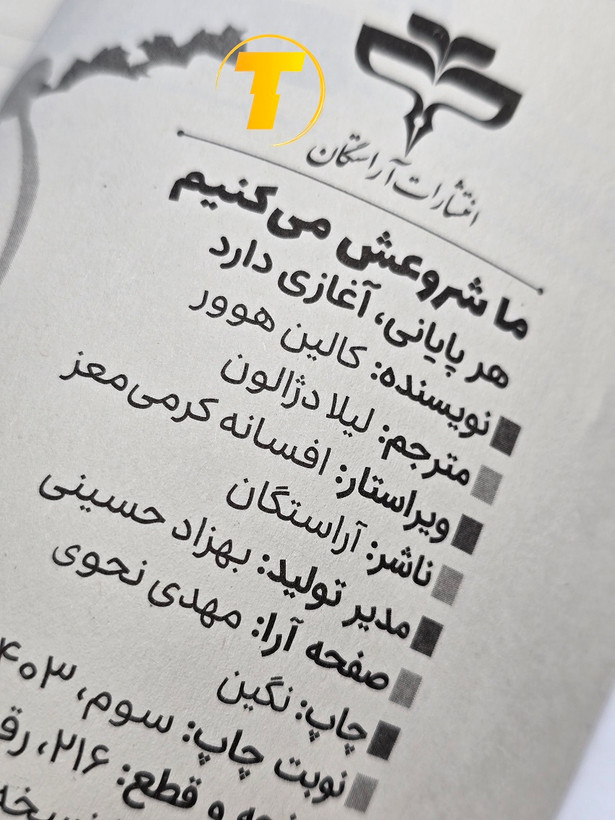 T
انتشارات آراستگان
ما شروعش می‌کنیم
هر پایانی، آغازی دارد
نویسنده: کالین هوور
مترجم: لیلا دژالون
ویراستار: افسانه کرمی‌معز
ناشر: آراستگان
مدیر تولید: بهزاد حسینی
صفحه آرا: مهدی نحوی
چاپ: نگین
نوبت چاپ: سوم،
و قطع: ۲۱۶،